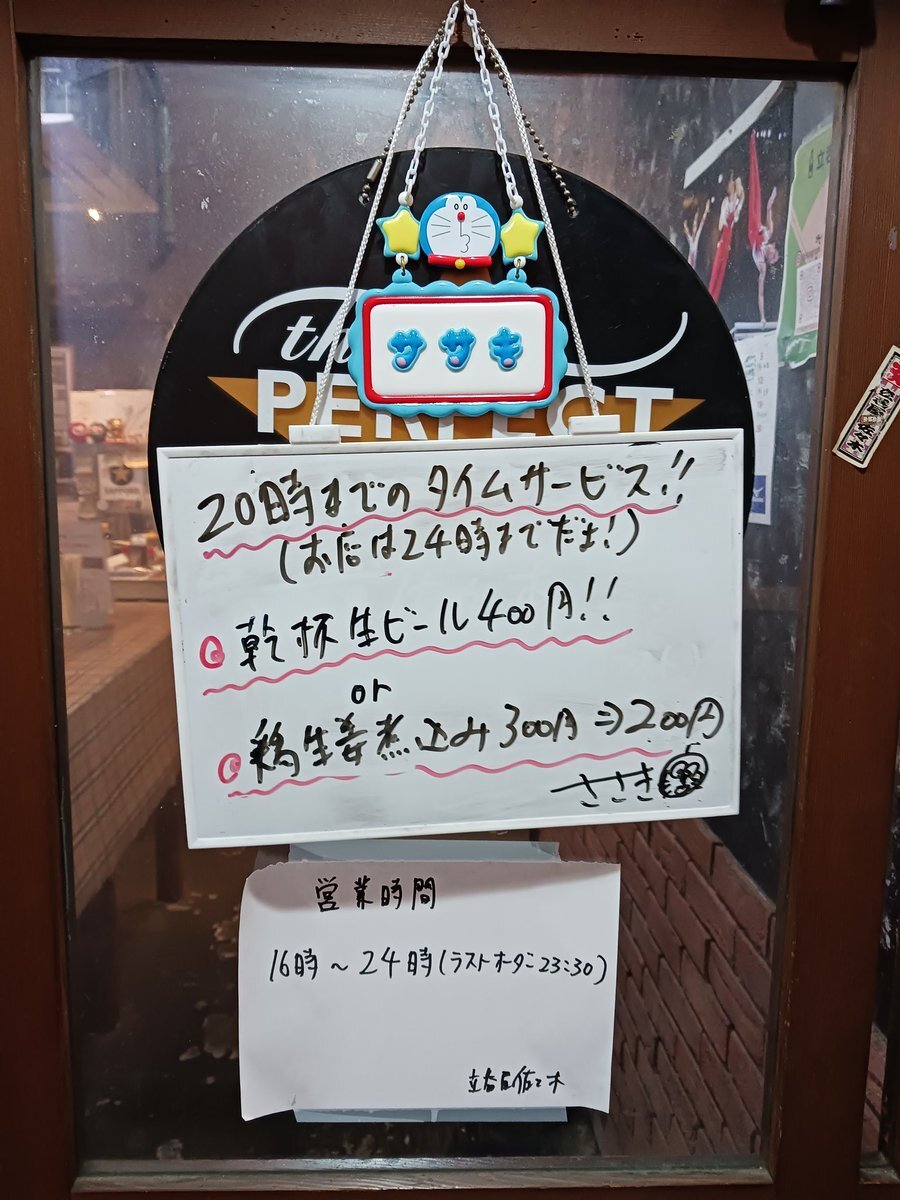 the
PERFECT
ササキ
20時までのタイムサービス!!
(お店は24時までだョ!)
乾杯生ビール400円!!
or
鶏生姜煮込み300円⇒200円
ささき
営業時間
16時〜24時(ラストオーダー23:30)
佐々木